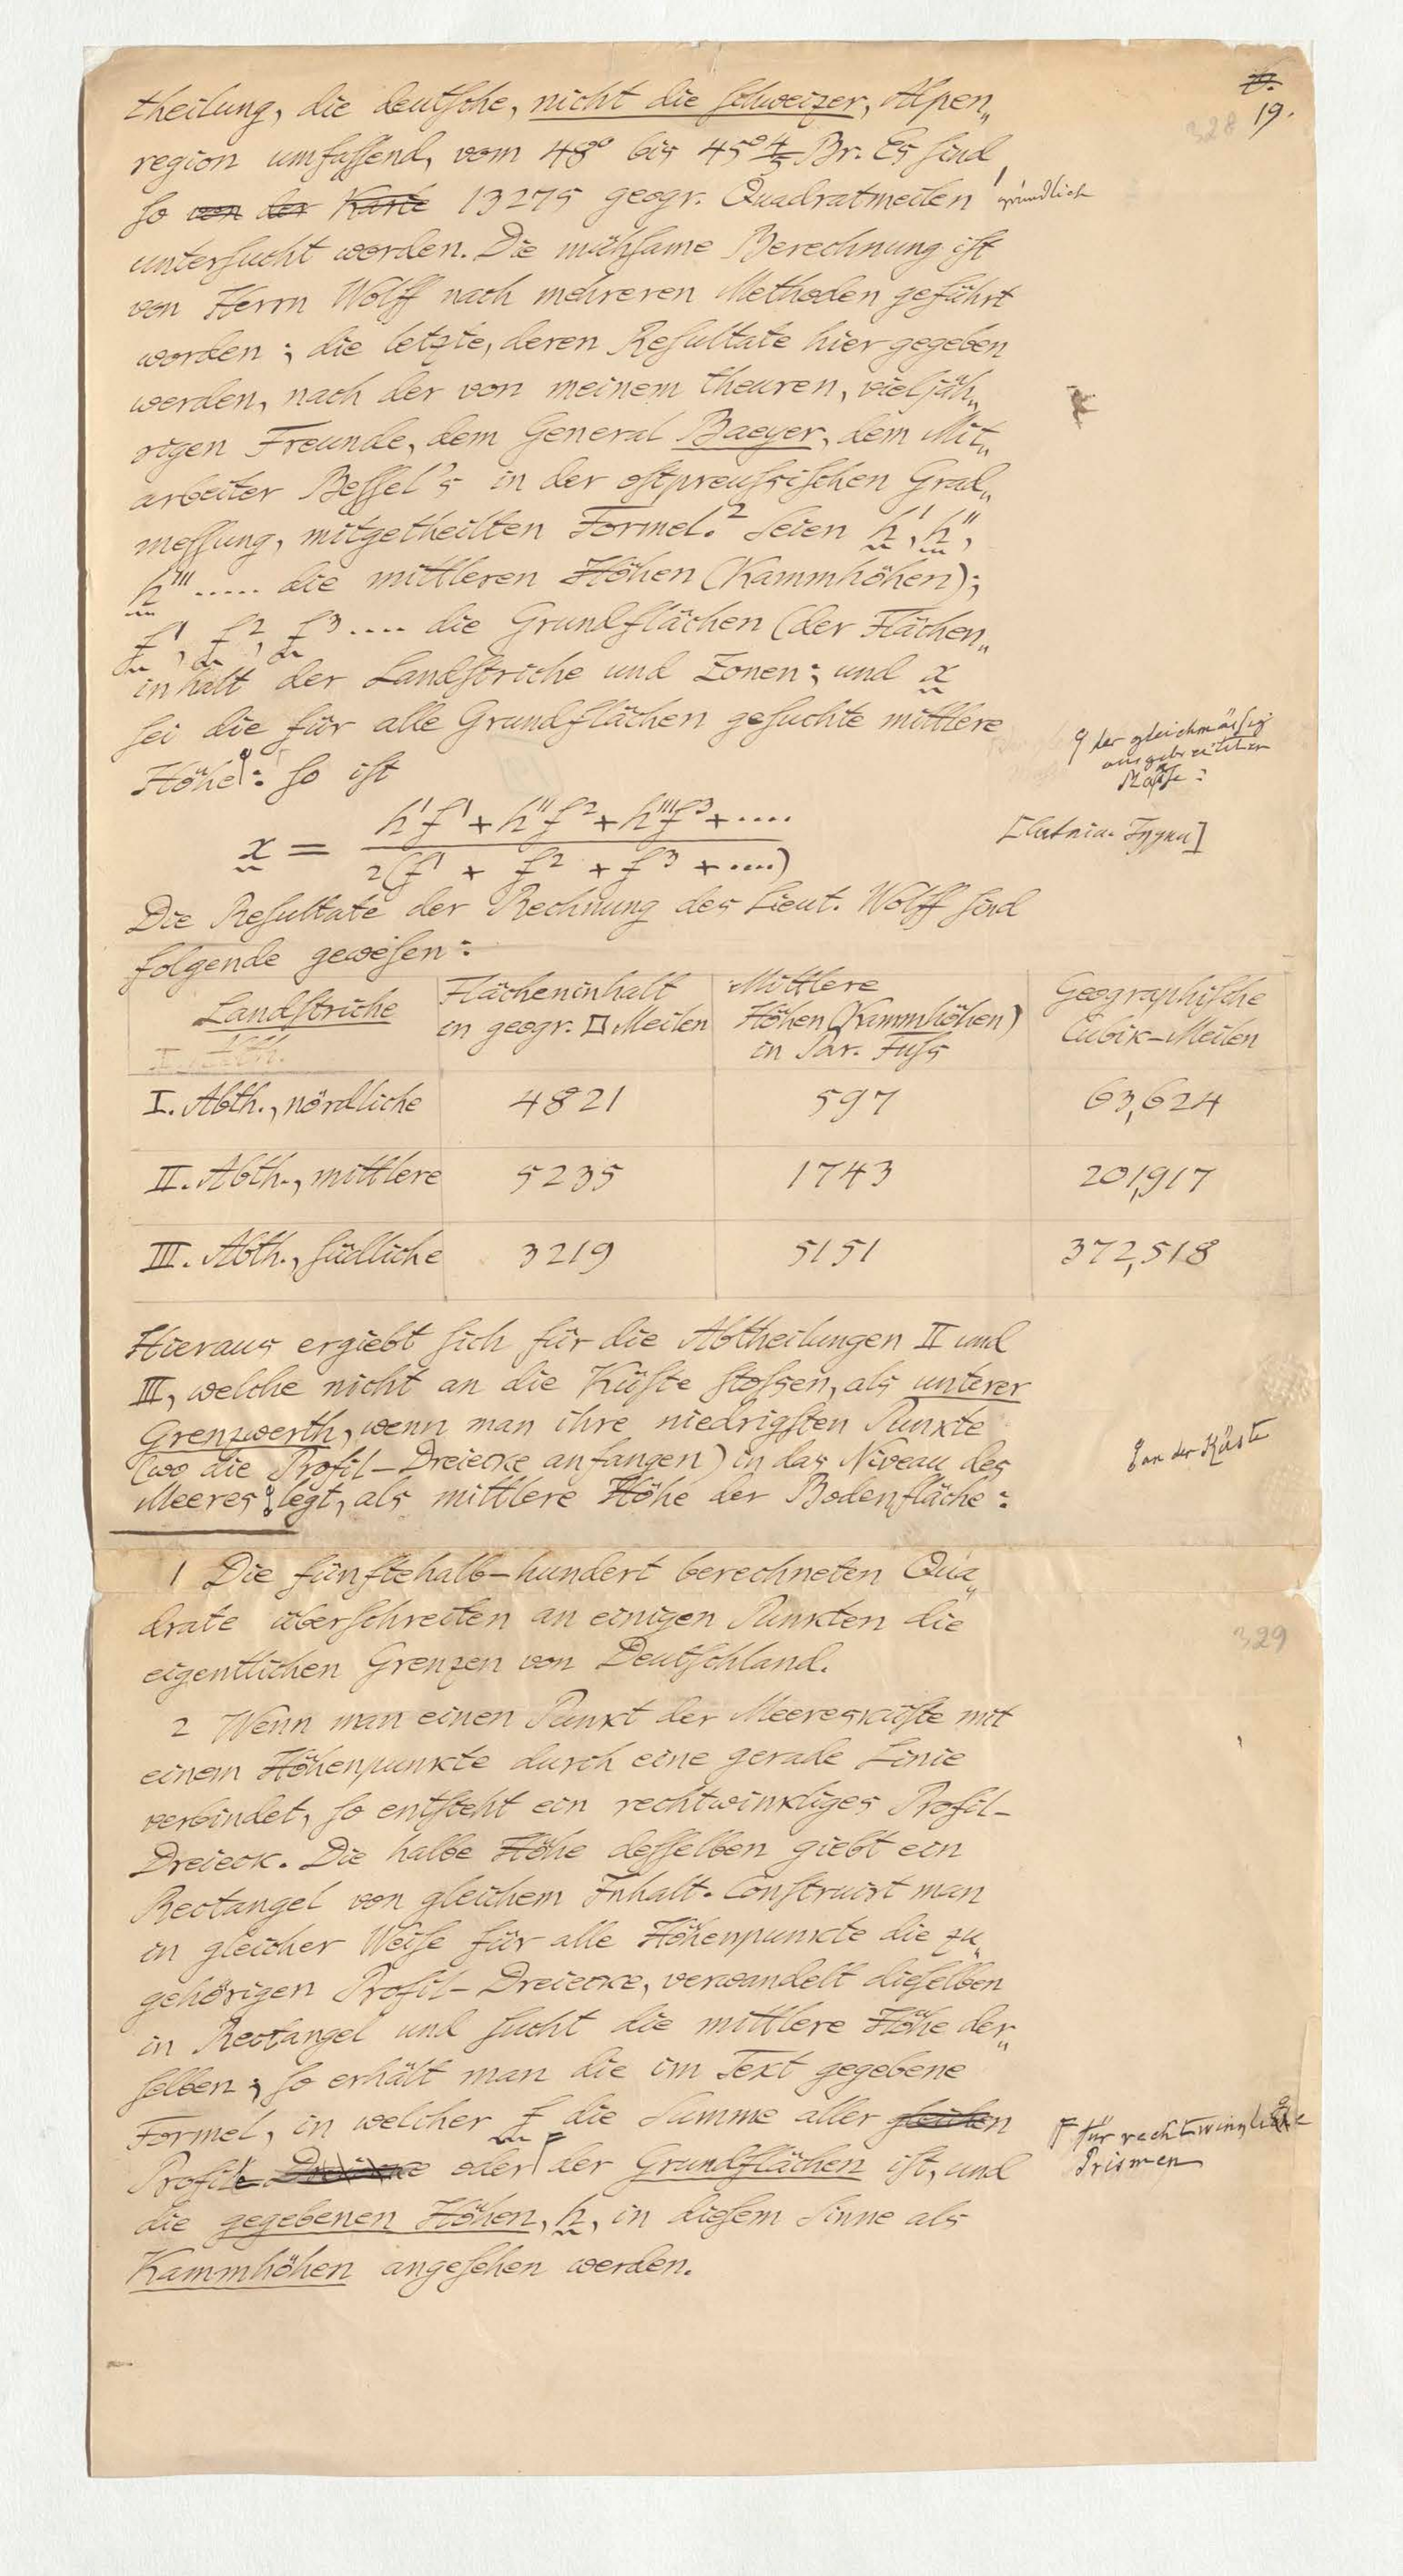 19.
328
theilung, die deutsche, nicht die schweizer, Alpen„
region umfassend, vom 48° bis 45°4/5 Br. Es sind
so von der Karte 13275 geogr. Quadratmeilen¹ gründlich
untersucht worden. Die mühsame Berechnung ist
von Herrn Wolff nach mehreren Methoden geführt
worden; die letzte, deren Resultate hier gegeben
werden, nach der von meinem theuren, vieljäh„
rigen Freunde, dem General Baeyer, dem Mit„
arbeiter Bessel's in der ostpreussischen Grad„
messung, mitgetheilten Formel.² Seien h', h'',
h''' ..... die mittleren Höhen (Kammhöhen);
f¹, f², f³ .... die Grundflächen (der Flächen„
inhalt der Landstriche und Zonen; und x
sei die für alle Grundflächen gesuchte mittlere
Höhe: so ist
der gleichmässig
ausgebreiteten
Masse:
x = h'f¹ + h''f² + h'''f³ + .... / 2(f¹ + f² + f³ + ....)
Die Resultate der Rechnung des Lieut. Wolff sind
folgende gewesen:
Landstriche | Flächeninhalt in geogr. □ Meilen | Mittlere Höhen (Kammhöhen) in Par. Fuss | Geographische Cubik-Meilen
I. Abth., nördliche | 4821 | 597 | 63,624
II. Abth., mittlere | 5235 | 1743 | 201,917
III. Abth., südliche | 3219 | 5151 | 372,518
Hieraus ergiebt sich für die Abtheilungen II und
III, welche nicht an die Küste stossen, als unterer
Grenzwerth, wenn man ihre niedrigsten Punkte
(wo die Profil-Dreiecke anfangen) in das Niveau des
Meeres legt, als mittlere Höhe der Bodenfläche:
an der Küste
1 Die fünftehalb-hundert berechneten Qua„
drate überschreiten an einigen Punkten die
329
eigentlichen Grenzen von Deutschland.
2 Wenn man einen Punkt der Meeresküste mit
einem Höhenpunkte durch eine gerade Linie
verbindet, so entsteht ein rechtwinkliges Profil-
Dreieck. Die halbe Höhe desselben giebt ein
Rectangel von gleichem Inhalt. Construirt man
in gleicher Weise für alle Höhenpunkte die zu„
gehörigen Profil-Dreiecke, verwandelt dieselben
in Rectangel und sucht die mittlere Höhe der„
selben; so erhält man die im Text gegebene
Formel, in welcher f die Summe aller gleichen
Profile oder der Grundflächen ist, und
für rechtwinklige
Prismen
die gegebenen Höhen, h, in diesem Sinne als
Kammhöhen angesehen werden.